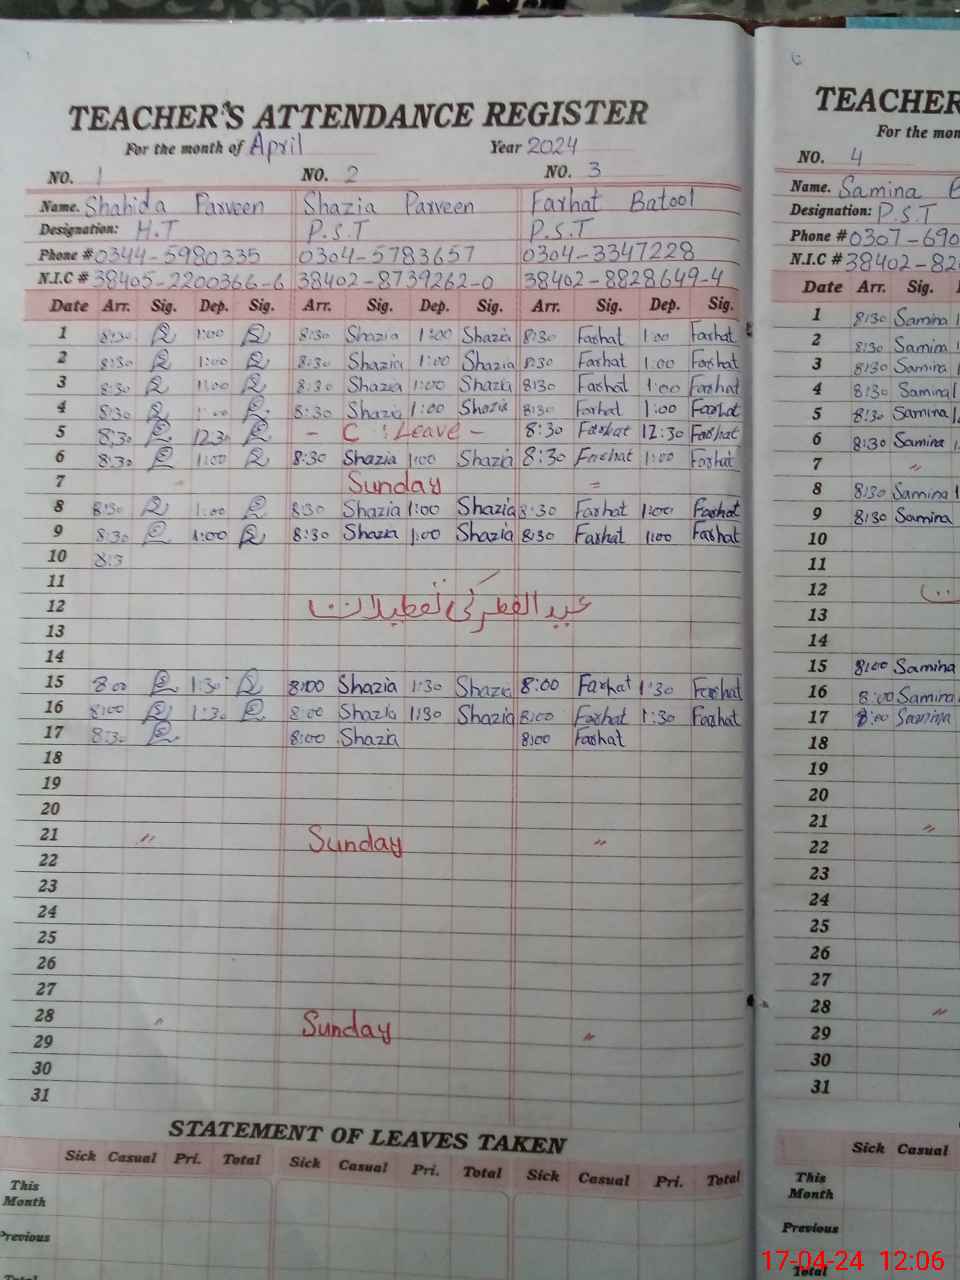 TEACHER'S ATTENDANCE REGISTER
For the month of April Year 2024
NO. 1 NO. 2 NO. 3
Name. Shahida Parveen Shazia Parveen Farhat Batool
Designation: H.T P.S.T P.S.T
Phone # 0344-5980335 0304-5783657 0304-3347228
N.I.C # 38405-2200366-6 38402-8739262-0 38402-8828649-4
Date Arr. Sig. Dep. Sig. Arr. Sig. Dep. Sig. Arr. Sig. Dep. Sig.
1 8:30 1:00 8:30 Shazia 1:00 Shazia 8:30 Farhat 1:00 Farhat
2 8:30 1:00 8:30 Shazia 1:00 Shazia 8:30 Farhat 1:00 Farhat
3 8:30 1:00 8:30 Shazia 1:00 Shazia 8:30 Farhat 1:00 Farhat
4 8:30 1:00 8:30 Shazia 1:00 Shazia 8:30 Farhat 1:00 Farhat
5 8:30 12:30 - C : Leave - 8:30 Farhat 12:30 Farhat
6 8:30 1:00 8:30 Shazia 1:00 Shazia 8:30 Farhat 1:00 Farhat
7 Sunday =
8 8:30 1:00 8:30 Shazia 1:00 Shazia 8:30 Farhat 1:00 Farhat
9 8:30 1:00 8:30 Shazia 1:00 Shazia 8:30 Farhat 1:00 Farhat
10 8:3
11
12 عید الفطر کی تعطیلات
13
14
15 8:00 1:30 8:00 Shazia 1:30 Shazia 8:00 Farhat 1:30 Farhat
16 8:00 1:30 8:00 Shazia 1:30 Shazia 8:00 Farhat 1:30 Farhat
17 8:30 8:00 Shazia 8:00 Farhat
18
19
20
21 〃 Sunday 〃
22
23
24
25
26
27
28 〃 Sunday 〃
29
30
31
STATEMENT OF LEAVES TAKEN
Sick Casual Pri. Total Sick Casual Pri. Total Sick Casual Pri. Total
This
Month
Previous
Total
TEACHER
For the mon
NO. 4
Name. Samina B
Designation: P.S.T
Phone # 0307-690
N.I.C # 38402-82
Date Arr. Sig.
1 8:30 Samina
2 8:30 Samina
3 8:30 Samina
4 8:30 Samina
5 8:30 Samina
6 8:30 Samina
7 〃
8 8:30 Samina
9 8:30 Samina
10
11
12
13
14
15 8:00 Samina
16 8:00 Samina
17 8:00 Samina
18
19
20
21 〃
22
23
24
25
26
27
28 〃
29
30
31
Sick Casual
This
Month
Previous
Total
17-04-24 12:06